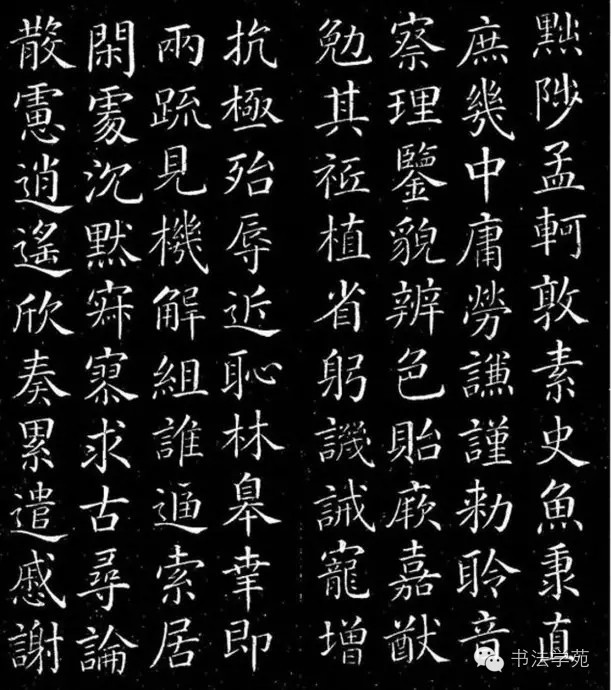 黜陟孟軻敦素史魚秉直
庶幾中庸勞謙謹勑聆音
察理鑒貌辨色貽厥嘉猷
勉其祗植省躬譏誡寵增
抗極殆辱近恥林皋幸即
兩疏見機解組誰逼索居
閑處沉默寂寥求古尋論
散慮逍遙欣奏累遣慼謝
书法学苑